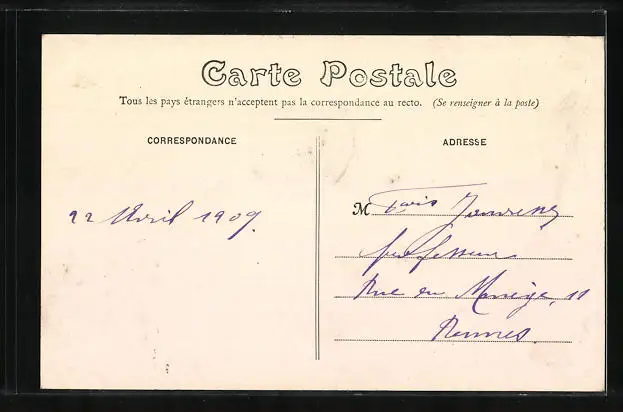 Carte Postale
Tous les pays étrangers n'acceptent pas la correspondance au recto. (Se renseigner à la poste)
CORRESPONDANCE
ADRESSE
22 Avril 1909.
M
professeur
Rue du Manège, 11
Rennes.